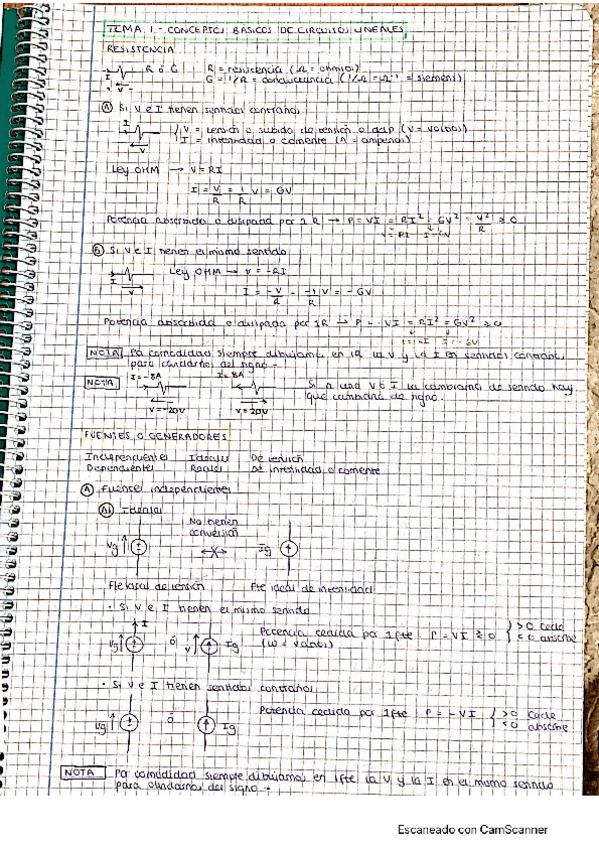 TEMA 1.- CONCEPTOS BÁSICOS DE CIRCUITOS LINEALES
RESISTENCIA
I R ó G R = resistencia (Ω = ohmios)
V G = 1/R = conductancia (1/Ω = Ω⁻¹ = siemens)
A Si V e I tienen sentidos contrarios
I V = tensión o subida de tensión o ddp (V = voltios)
V I = intensidad o corriente (A = amperios)
Ley OHM → V = RI
I = V/R = 1/R V = GV
Potencia absorbida o disipada por 1 R → P = VI = RI² = GV² = V²/R ≥ 0
V = RI I = GV
B Si V e I tienen el mismo sentido
I V Ley OHM → V = -RI
I = -V/R = -1/R V = -GV
Potencia absorbida o disipada por 1R → P = -VI = RI² = GV² ≥ 0
V=-RI I=-GV
NOTA Por comodidad siempre dibujamos en 1R la V y la I en sentidos contrarios
para olvidarnos del signo -
NOTA I=-8A I=8A Si a una V o I la cambiamos de sentido hay
V=-20V V=20V que cambiarla de signo.
FUENTES O GENERADORES
Independientes Ideales De tensión
Dependientes Reales De intensidad o corriente
A Fuentes independientes
A1 Ideales
No tienen
conversión
Vg Ig
Fte ideal de tensión Fte ideal de intensidad
· Si V e I tienen el mismo sentido
I
Vg ó V Ig Potencia cedida por 1 fte P = VI ≥ 0 >0 cede
(W = vatios) <0 absorbe
· Si V e I tienen sentidos contrarios
Vg ó Ig Potencia cedida por 1 fte P = -VI >0 cede
<0 absorbe
NOTA Por comodidad siempre dibujamos en 1 fte la V y la I en el mismo sentido
para olvidarnos del signo -
Escaneado con CamScanner